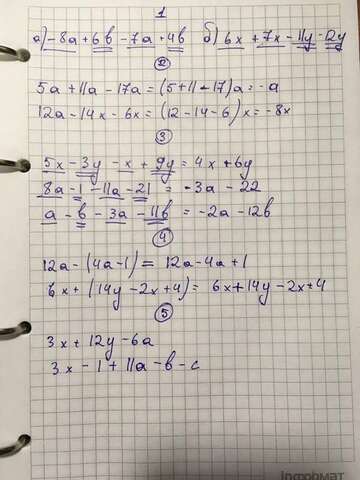 1
а) -8a + 6b - 7a + 4b б) 6x + 7x - 11y - 12y
2
5a + 11a - 17a = (5 + 11 - 17)a = -a
12a - 14x - 6x = (12 - 14 - 6)x = -8x
3
5x - 3y - x + 9y = 4x + 6y
8a - 1 - 11a - 21 = -3a - 22
a - b - 3a - 11b = -2a - 12b
4
12a - (4a - 1) = 12a - 4a + 1
6x + (14y - 2x + 4) = 6x + 14y - 2x + 4
5
3x + 12y - 6a
3x - 1 + 11a - b - c